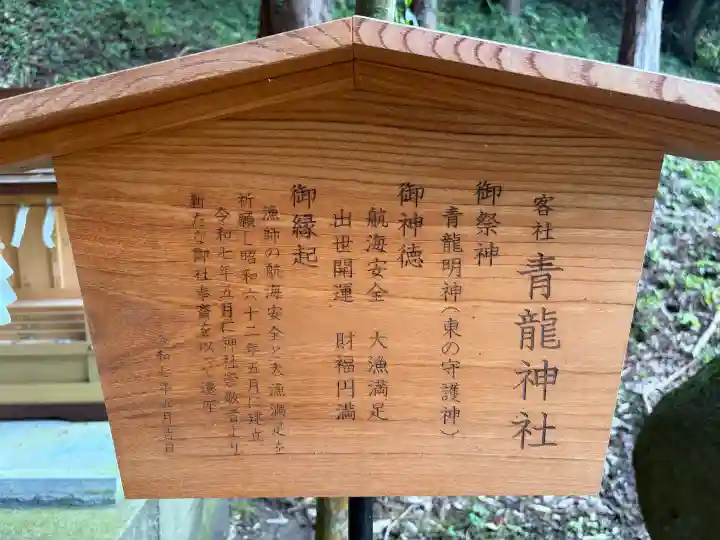 客社 青龍神社
御祭神
青龍明神(東の守護神)
御神徳
航海安全 大漁満足
出世開運 財福円満
御縁起
漁師の航海安全と大漁満足を
祈願し昭和六十二年五月に建立
令和七年五月に神社崇敬者より
新たな御社奉斎を以って遷座
令和七年五月吉日